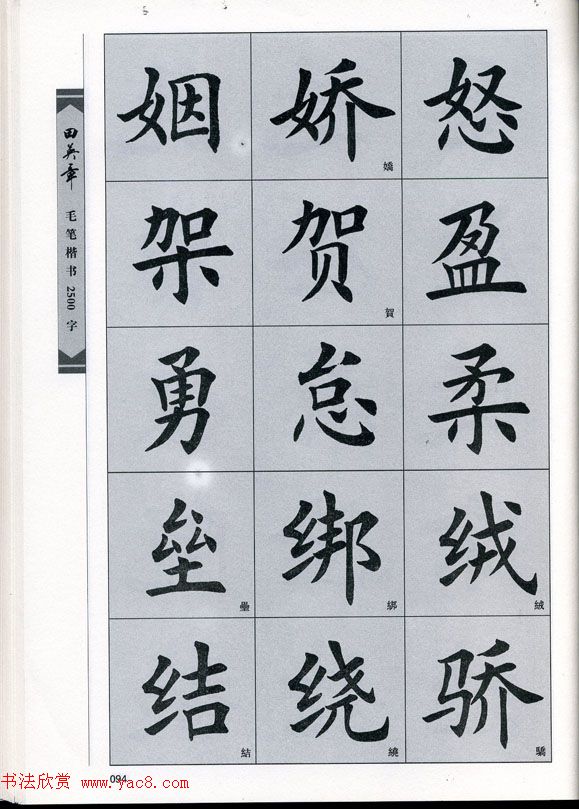 田英章
毛笔楷书2500字
姻 娇 嬌 怒
架 贺 賀 盈
勇 怠 柔
垒 壘 绑 綁 绒 絨
结 結 绕 繞 骄 驕
094
书法欣赏 www.yac8.com